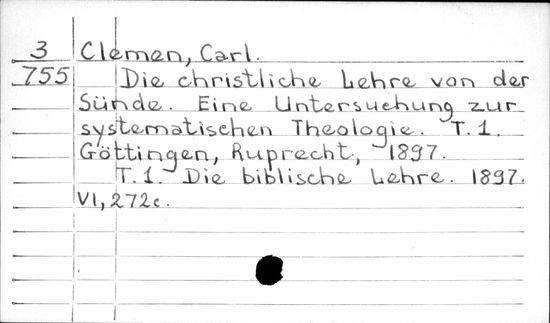 3 Clemen, Carl.
755 Die christliche Lehre von der
Sünde. Eine Untersuchung zur
systematischen Theologie. T.1.
Göttingen, Ruprecht, 1897.
T.1. Die biblische Lehre. 1897.
VI, 272c.